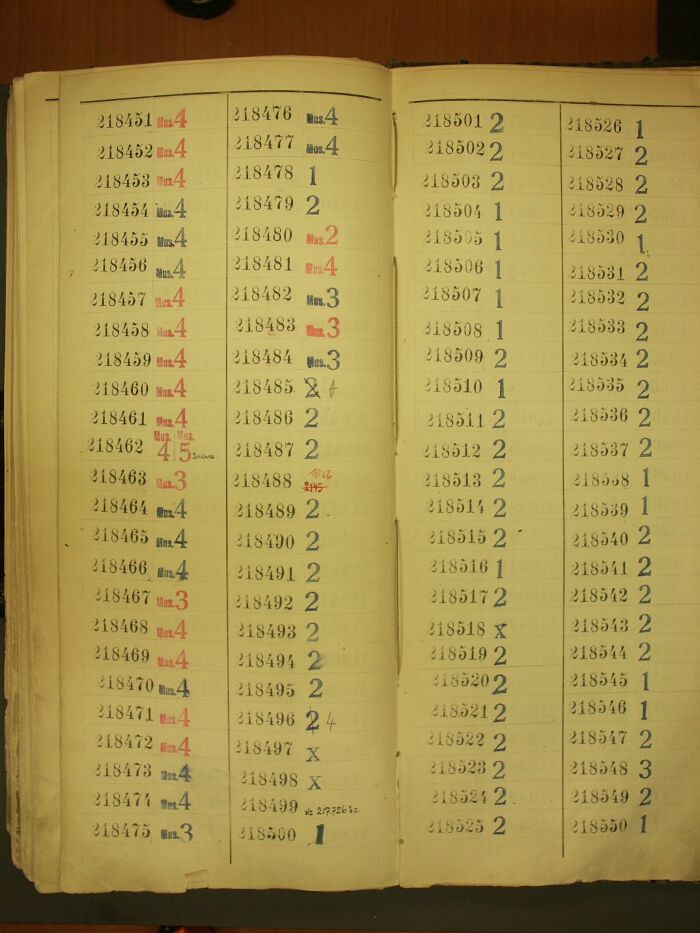 218451 Mus.4
218452 Mus.4
218453 Mus.4
218454 Mus.4
218455 Mus.4
218456 Mus.4
218457 Mus.4
218458 Mus.4
218459 Mus.4
218460 Mus.4
218461 Mus.4
218462 Mus. 4 Mus. 5
218463 Mus.3
218464 Mus.4
218465 Mus.4
218466 Mus.4
218467 Mus.3
218468 Mus.4
218469 Mus.4
218470 Mus.4
218471 Mus.4
218472 Mus.4
218473 Mus.4
218474 Mus.4
218475 Mus.3
218476 Mus.4
218477 Mus.4
218478 1
218479 2
218480 Mus.2
218481 Mus.4
218482 Mus.3
218483 Mus.3
218484 Mus.3
218485 2
218486 2
218487 2
218488 1056 2145
218489 2
218490 2
218491 2
218492 2
218493 2
218494 2
218495 2
218496 2 4
218497 x
218498 x
218499 viz 217.726
218500 1
218501 2
218502 2
218503 2
218504 1
218505 1
218506 1
218507 1
218508 1
218509 2
218510 1
218511 2
218512 2
218513 2
218514 2
218515 2
218516 1
218517 2
218518 x
218519 2
218520 2
218521 2
218522 2
218523 2
218524 2
218525 2
218526 1
218527 2
218528 2
218529 2
218530 1
218531 2
218532 2
218533 2
218534 2
218535 2
218536 2
218537 2
218538 1
218539 1
218540 2
218541 2
218542 2
218543 2
218544 2
218545 1
218546 1
218547 2
218548 3
218549 2
218550 1